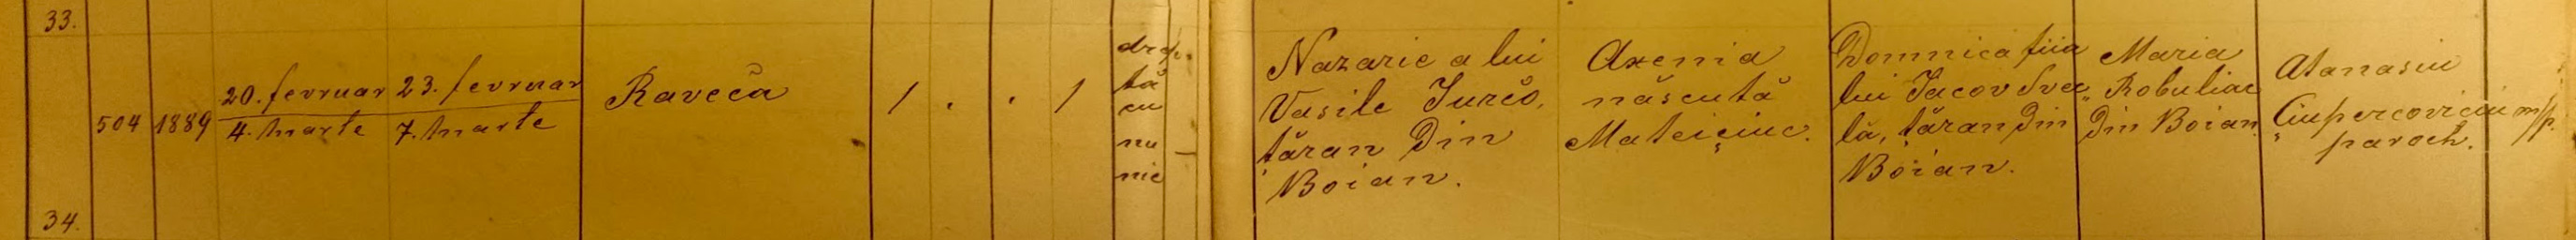 33.
504 1889
20. fevruar 23. fevruar
4. Marte 7. Marte
Raveca
1 . . 1
drep.
tă
cu
nu
nie
Nazarie a lui
Vasile Iurčo,
țăran din
Boian.
Axenia
născută
Mateiciuc.
Domnica fiia
lui Iacov Svec„
lă, țăran din
Boian.
Maria
Robuliac
din Boian.
Atanasiu
Ciupercoviciu m/p.
paroch.
34.